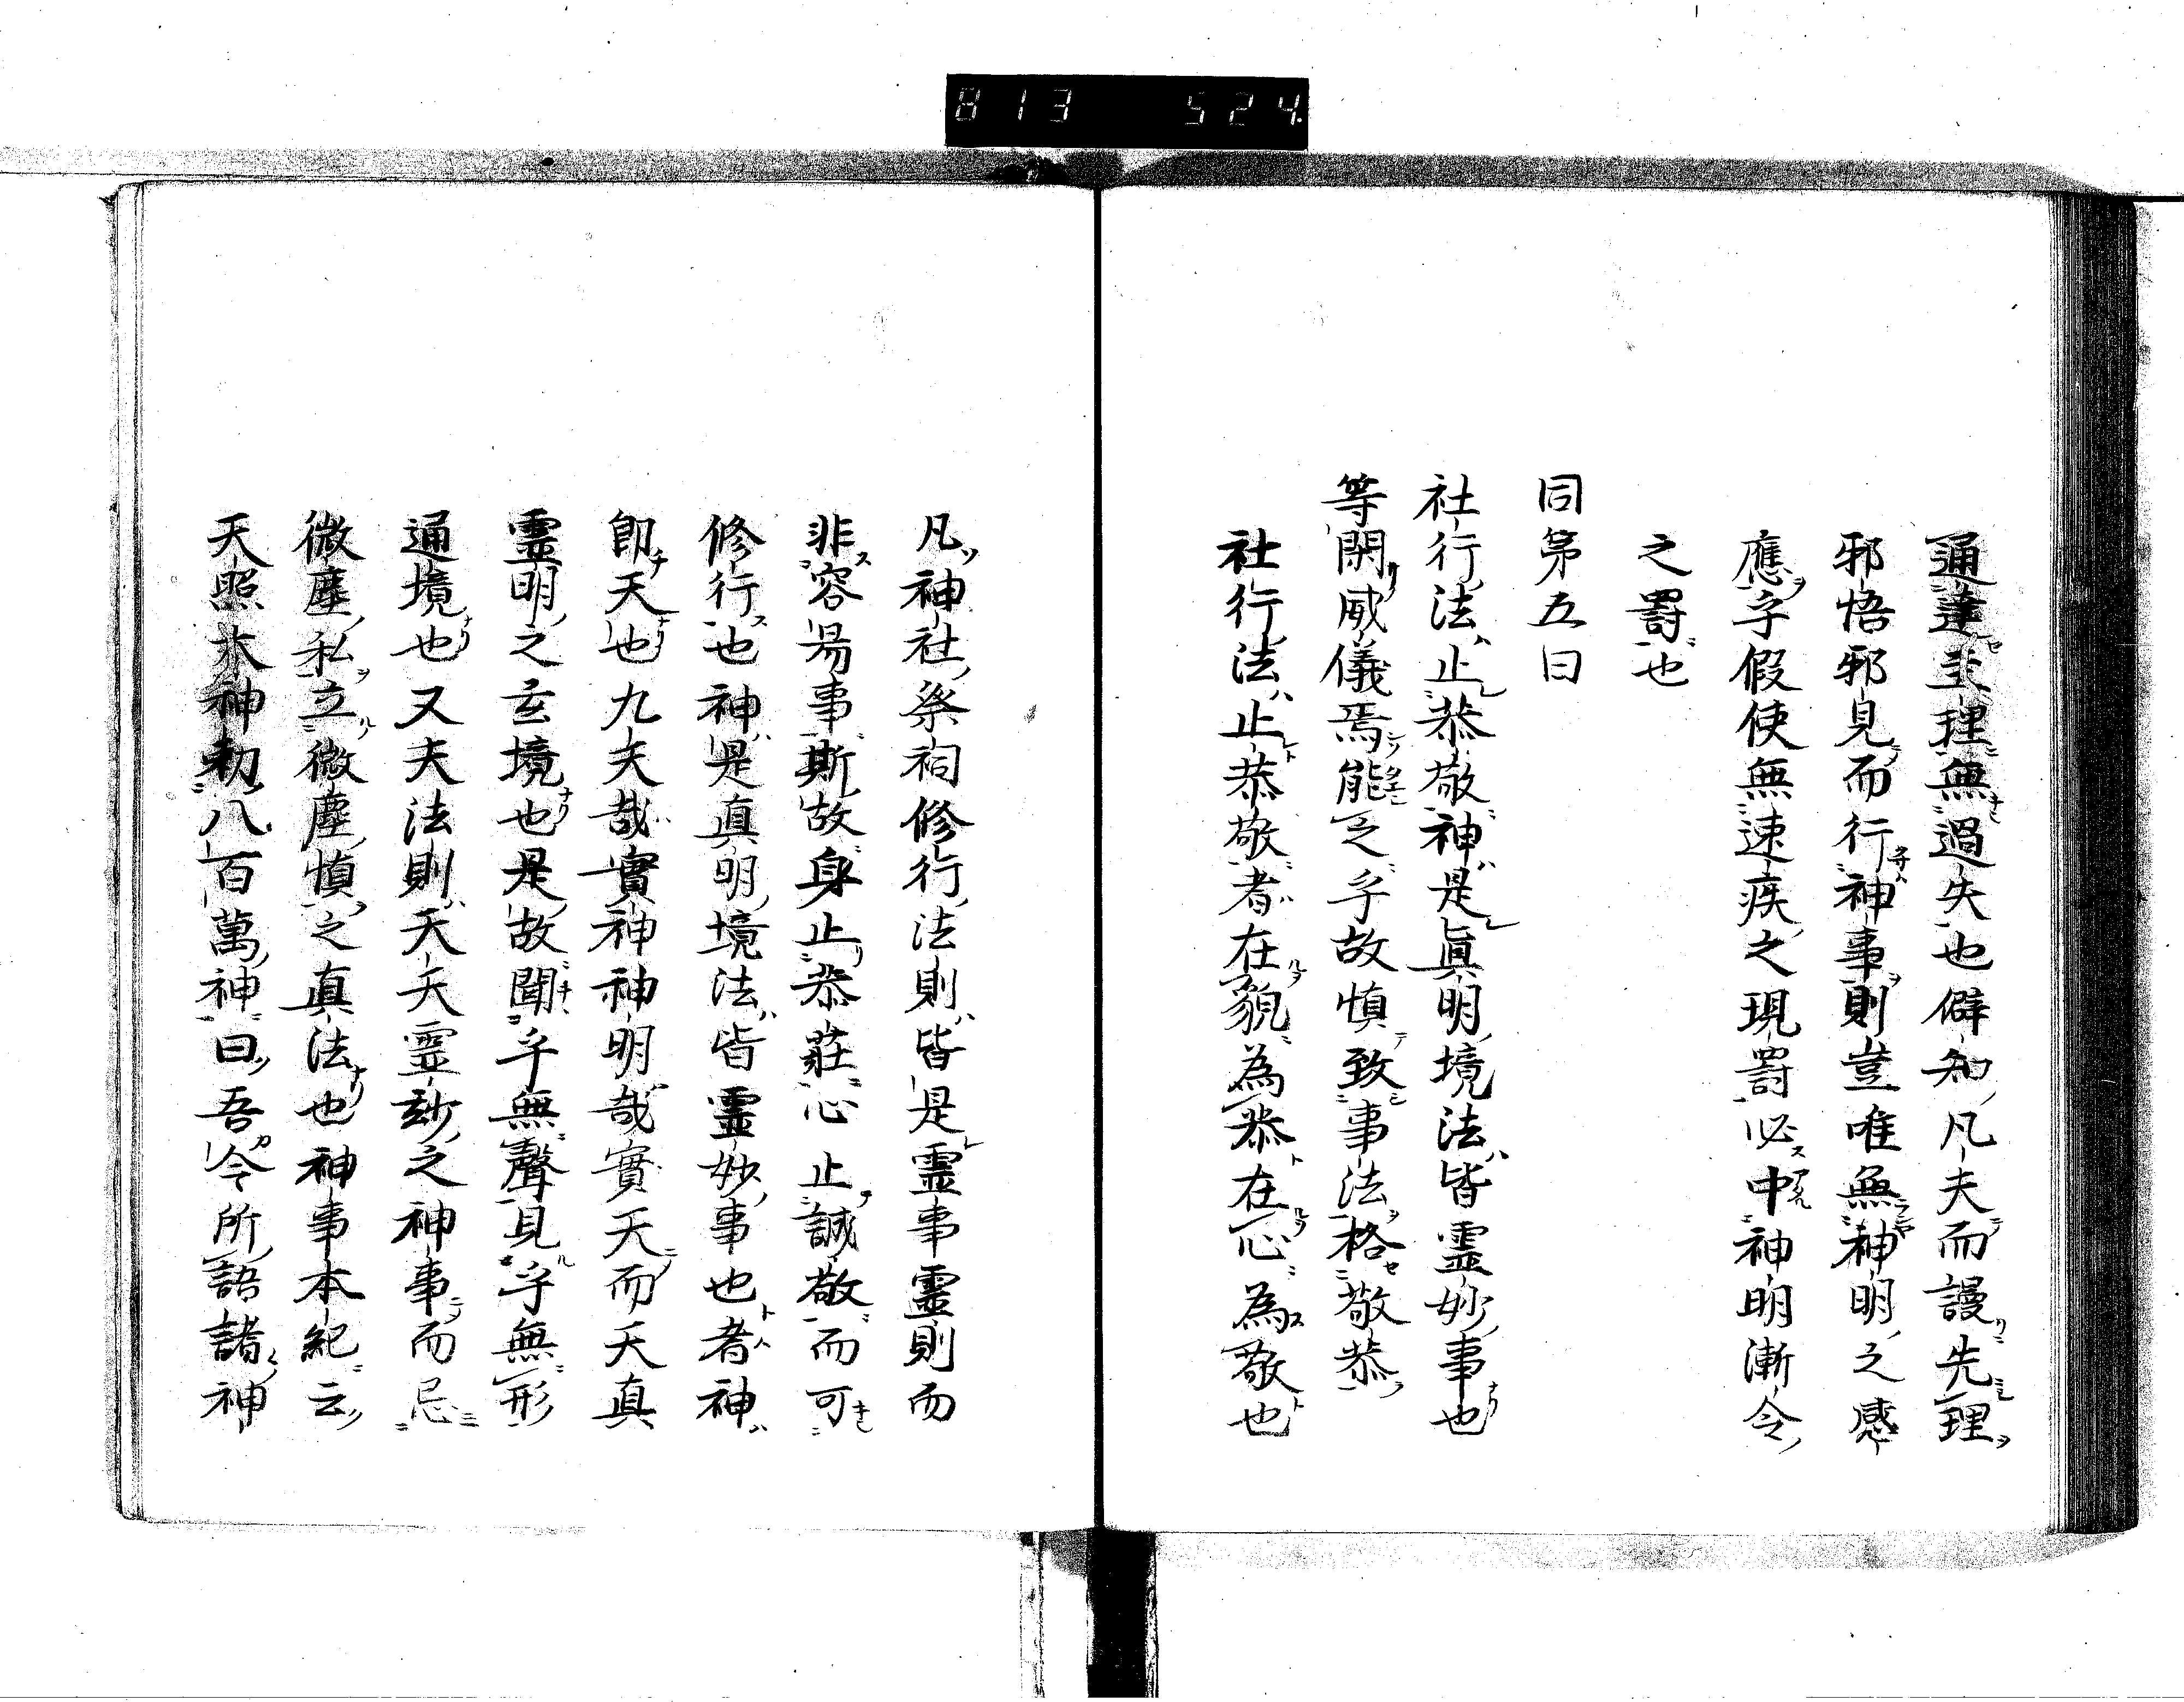 813 524.
通達至理無過失也僻知凡夫而謾先理
邪悟邪見而行神事則豈唯無神明之感
應乎假使無速疾之現罸必中神明漸令
之罸也
同第五曰
社行法止恭敬神是眞明境法皆霊妙事也
等閑威儀焉能之乎故慎致事法格敬恭
社行法止恭敬者在貌為恭在心為敬也
凡神社祭祠修行法則皆是霊事霊則而
非容昜事斯故身止恭莊心止誠敬而可
修行也神是真明境法皆霊妙事也者神
即天也九夫哉實神神明哉實天而天真
霊明之玄境也是故聞乎無聲見乎無形
通境也又夫法則天天霊玅之神事而忌
微塵私立微塵慎之真法也神事本紀云
天照太神勅八百萬神曰吾今所語諸神